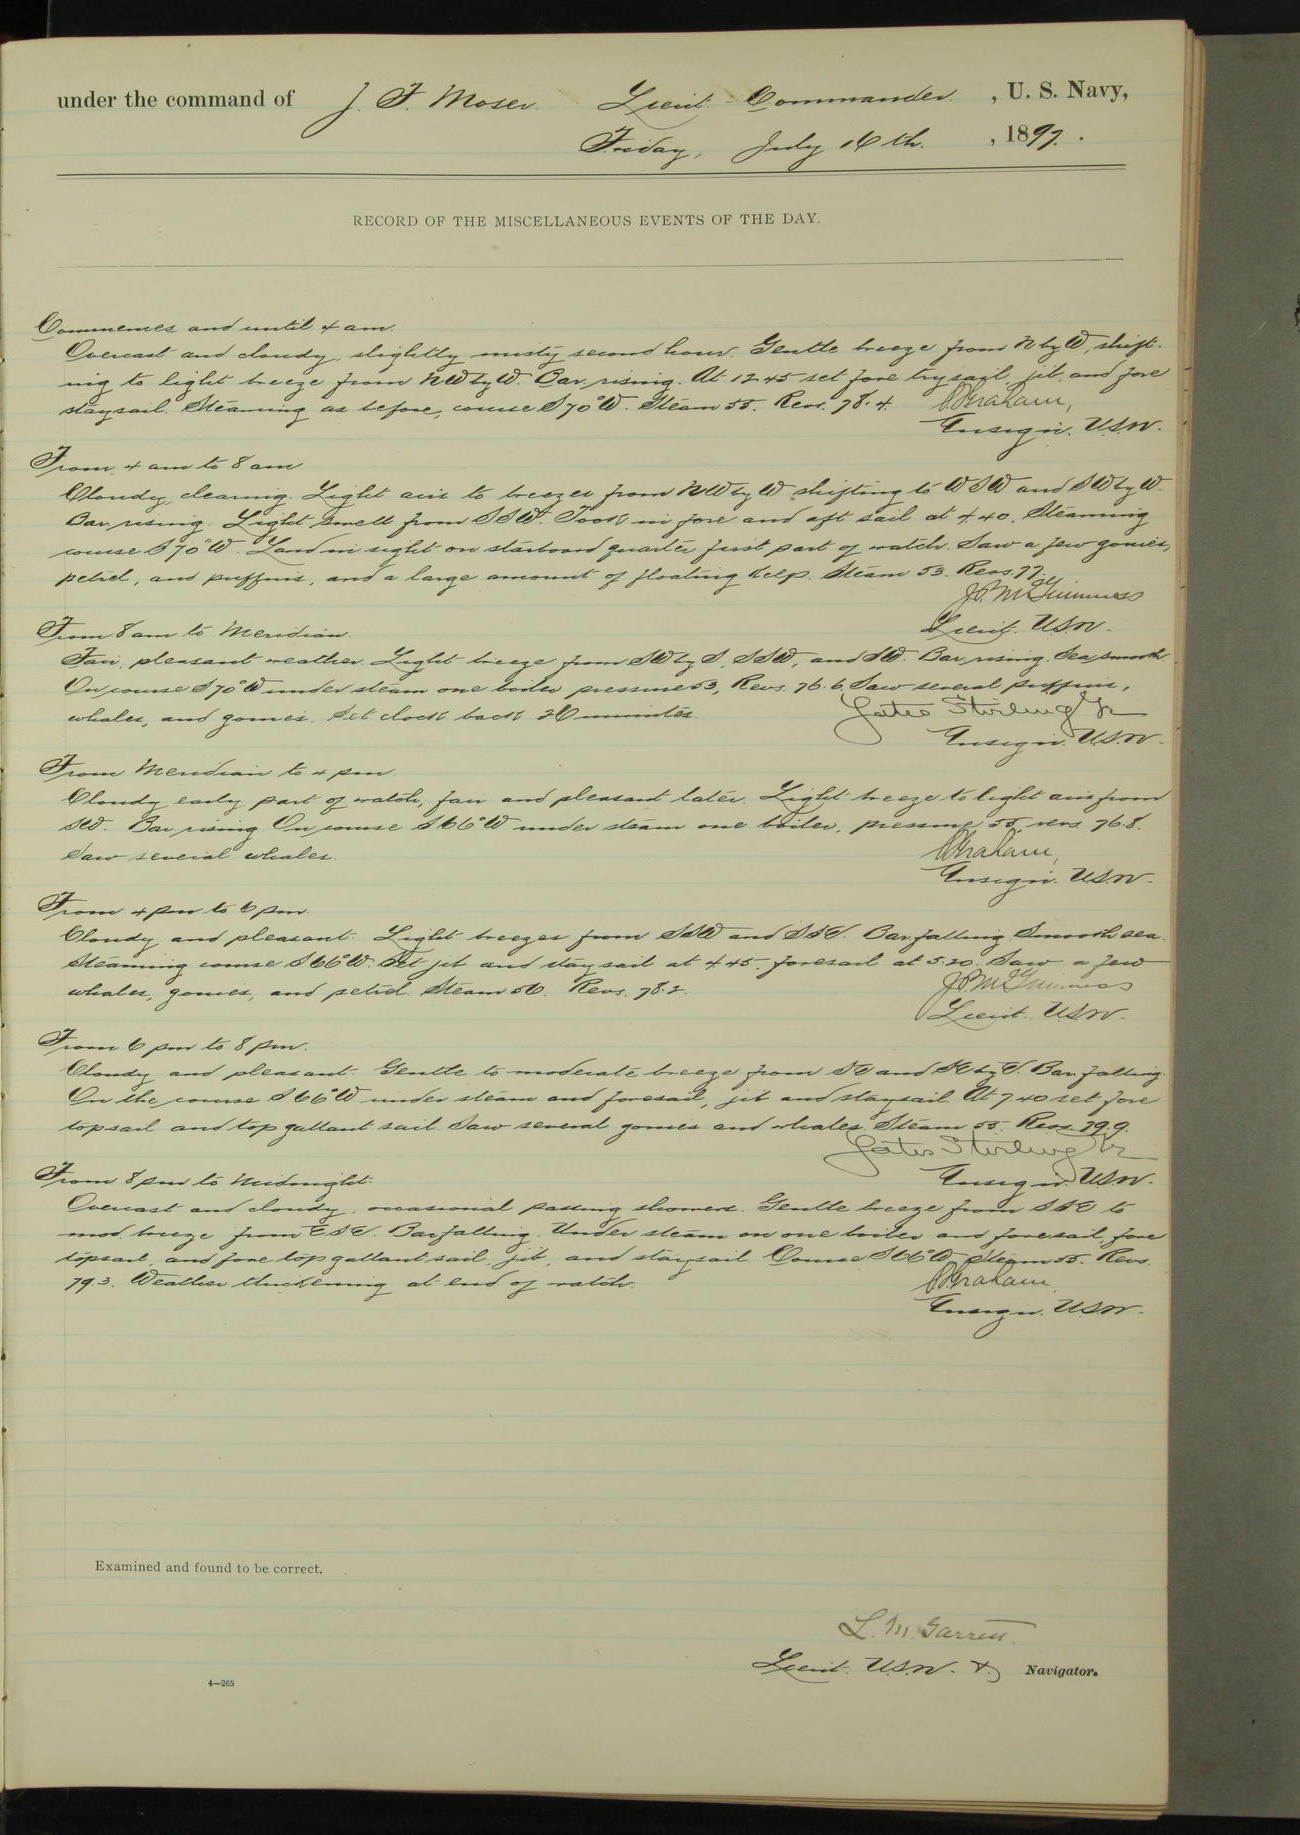 under the command of J. F. Moser Lieut. - Commander. , U. S. Navy,
Friday, July 16th. , 1897.
RECORD OF THE MISCELLANEOUS EVENTS OF THE DAY.
Commences and until 4 am.
Overcast and cloudy, slightly misty second hour. Gentle breeze from N by W, shift-
ing to light breeze from NW by W. Bar. rising. At 12.45 set fore trysail, jib, and fore
staysail. Steaming as before, course S 70° W. Steam 55. Revs. 78.4.
Graham,
Ensign. U.S.N.
From 4 am to 8 am
Cloudy, clearing. Light airs to breezes from NW by W shifting to WSW and SW by W.
Bar. rising. Light swell from SSW. Took in fore and aft sail at 4.40. Steaming
course S 70° W. Land in sight on starboard quarter first part of watch. Saw a few gonies,
petrel, and puffins, and a large amount of floating kelp. Steam 53. Revs. 77.
J.P. McGuinness
Lieut. U.S.N.
From 8 am to Meridian.
Fair, pleasant weather. Light breeze from SW by S, SSW, and SW. Bar. rising. Sea smooth
On course S 70° W under steam one boiler pressure 53, Revs. 76.6. Saw several puffins,
whales, and gonies. Set clock back 26 minutes.
Yates Stirling Jr
Ensign. U.S.N.
From Meridian to 4 pm.
Cloudy early part of watch, fair and pleasant later. Light breeze to light airs from
SW. Bar. rising. On course S 66° W under steam one boiler, pressure 55, revs. 76.8.
Saw several whales.
Graham,
Ensign. U.S.N.
From 4 pm to 6 pm.
Cloudy and pleasant. Light breezes from SSW and SSE. Bar. falling. Smooth sea.
Steaming course S 66° W. Set jib and staysail at 4.45. foresail at 5.20. Saw a few
whales, gonies, and petrel. Steam 56. Revs. 78.2.
J.P. McGuinness
Lieut. U.S.N.
From 6 pm to 8 pm.
Cloudy and pleasant. Gentle to moderate breeze from SE and SE by E. Bar. falling.
On the course S 66° W under steam and foresail, jib and staysail. At 7.40 set fore
topsail and top gallant sail. Saw several gonies and whales. Steam 55. Revs. 79.9.
Yates Stirling Jr
Ensign. U.S.N.
From 8 pm to Midnight.
Overcast and cloudy, occasional passing showers. Gentle breeze from SSE to
mod. breeze from ESE. Bar. falling. Under steam on one boiler and foresail, fore
topsail, and fore top gallant sail, jib, and staysail. Course S 66° W, Steam 55. Revs.
79.3. Weather thickening at end of watch.
Graham,
Ensign. U.S.N.
Examined and found to be correct.
L. M. Garrett.
Lieut. U.S.N. & Navigator.
4—265